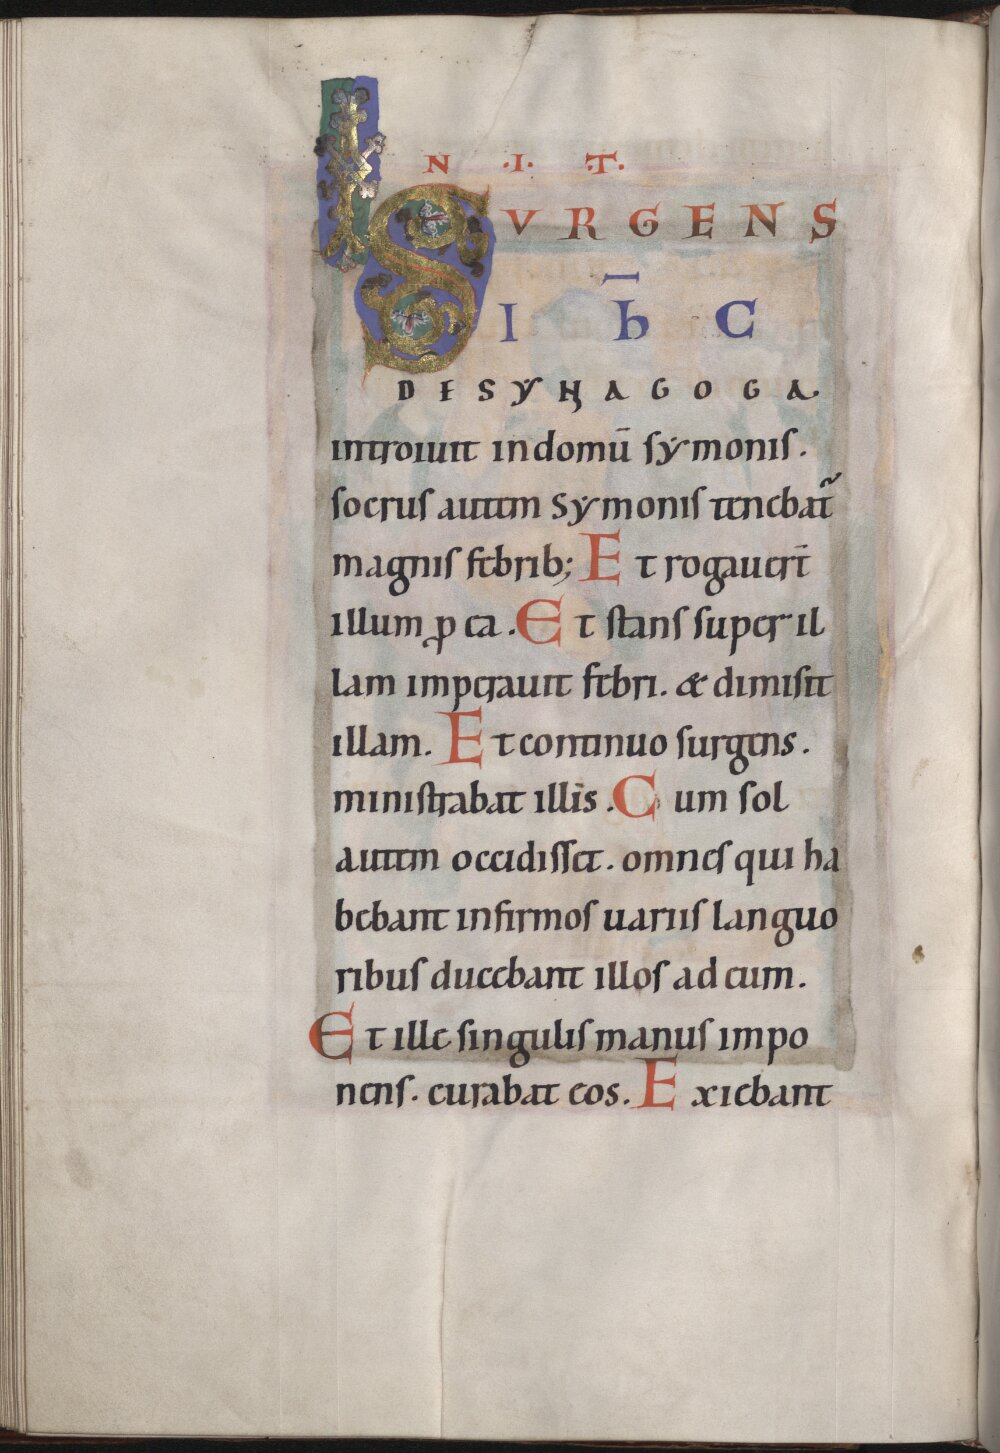 IN · I · T ·
SVRGENS
I h̅ C
DE SYNAGOGA
introiuit in domū sẏmonis.
socrus autem Sẏmonis tenebat᷑
magnis febrib; Et rogauer̄t
illum ꝓ ea. Et stans super il
lam imperauit febri. & dimisit
illam. Et continuo surgens.
ministrabat illis. Cum sol
autem occidisset. omnes qui ha
bebant infirmos uariis languo
ribus ducebant illos ad eum.
Et ille singulis manus impo
nens. curabat eos. Exiebant